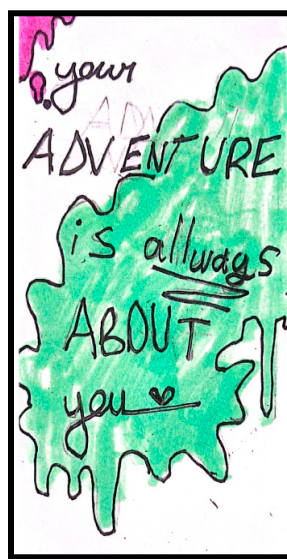 your
ADVENTURE
is allways
ABOUT
you